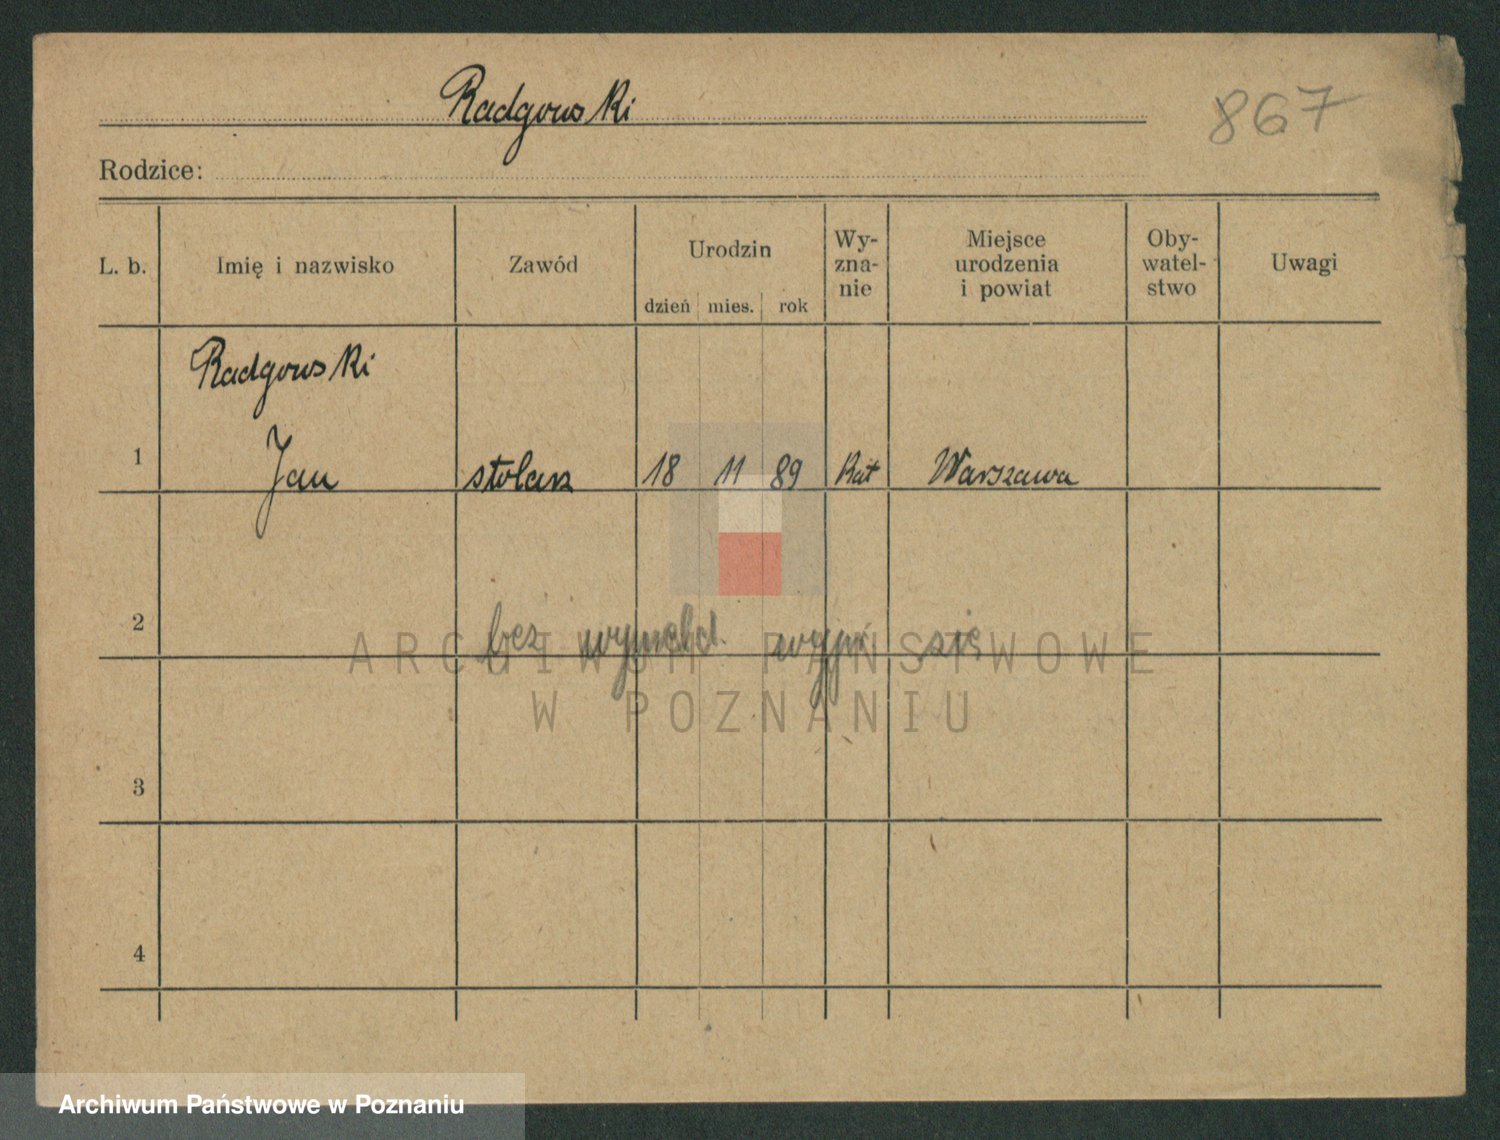 Radgowski
867
Rodzice:
L. b. Imię i nazwisko Zawód Urodzin dzień mies. rok Wy-zna-nie Miejsce urodzenia i powiat Oby-watel-stwo Uwagi
Radgowski
1 Jan stolarz 18 11 89 Kat Warszawa
2 bez wymeld. się
ARCHIWUM PAŃSTWOWE
W POZNANIU
3
4
Archiwum Państwowe w Poznaniu